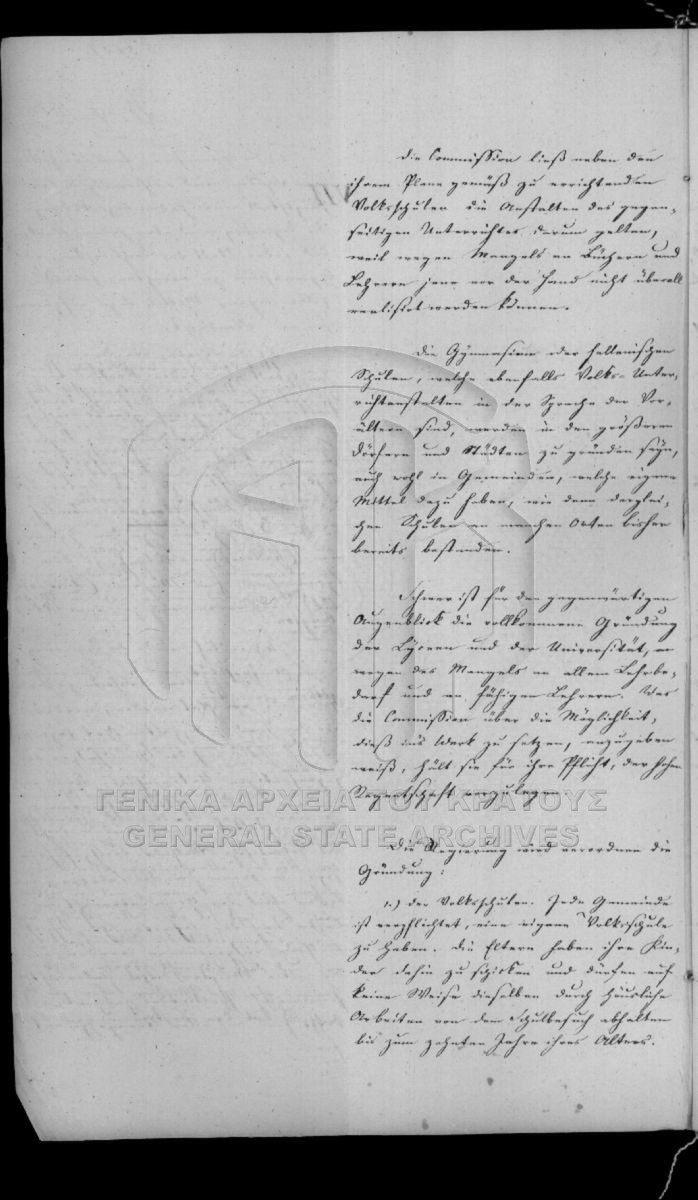 die Commission ließ neben den
ihrem Plane gemäß zu errichtenden
Volksschulen die Anstalten des gegen-
seitigen Unterrichtes darum gelten,
weil wegen Mangels an Büchern und
Lehrern jene vor der Hand nicht überall
realisirt werden können.
Die Gymnasien oder hellenischen
Schulen, welche ebenfalls Volks-Unter-
richtsanstalten in der Sprache der Vor-
ältern sind, werden in den größeren
Dörfern und Städten zu gründen seyn,
auch wohl in Gemeinden, welche eigene
Mittel dazu haben, wie denn derglei-
chen Schulen an manchen Orten bisher
bereits bestanden.
Schwer ist für den gegenwärtigen
Augenblick die vollkommene Gründung
der Lyceen und der Universität,
wegen des Mangels an allem Lehrbe-
darf und an fähigen Lehrern. Was
die Commission über die Möglichkeit,
dieß ins Werk zu setzen, anzugeben
weiß, hält sie für ihre Pflicht, der hohen
Regentschaft vorzulegen.
ΓΕΝΙΚΑ ΑΡΧΕΙΑ ΤΟΥ ΚΡΑΤΟΥΣ
GENERAL STATE ARCHIVES
Die Regierung wird verordnen die
Gründung:
1.) der Volksschulen. Jede Gemeinde
ist verpflichtet, eine eigene Volksschule
zu haben. Die Eltern haben ihre Kin-
der dahin zu schicken und dürfen auf
keine Weise dieselben durch häusliche
Arbeiten von dem Schulbesuch abhalten
bis zum zehnten Jahre ihres Alters.